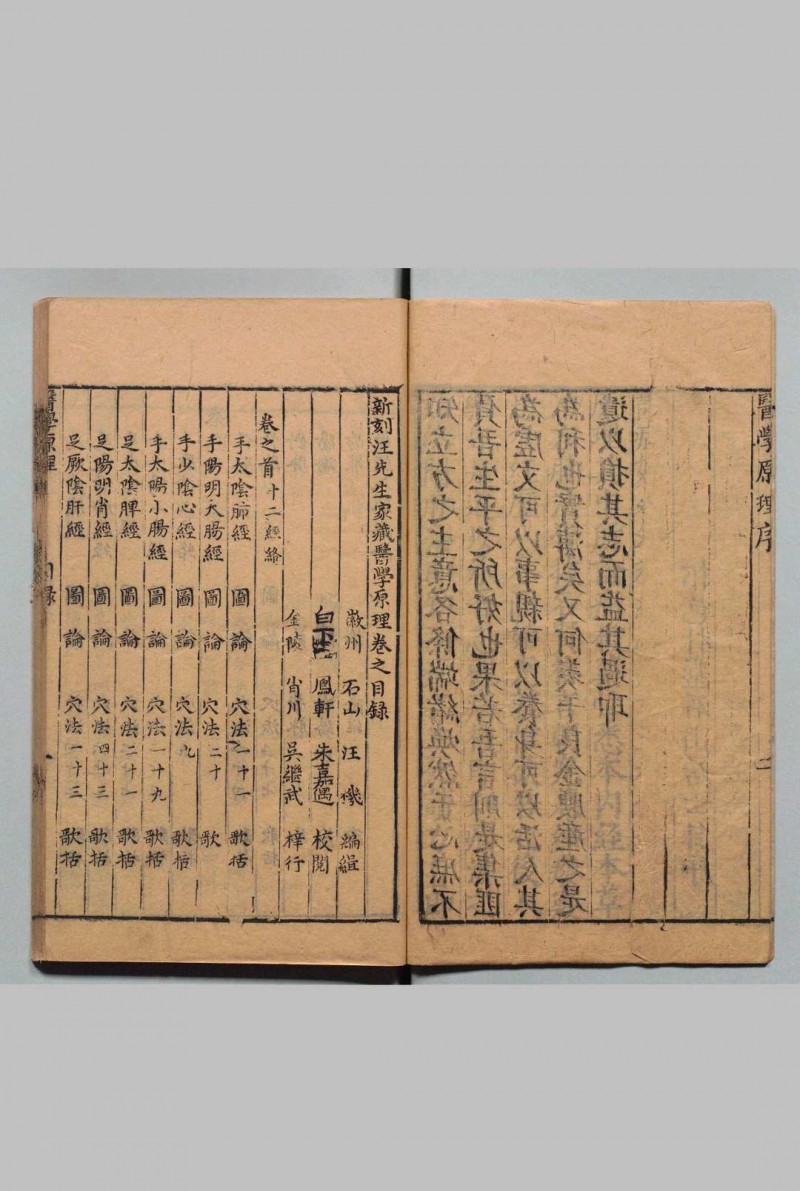 醫學原理序
知立方之主意各條端緒煥然于心庶不
負吾生平之所好也果若吾言則是集匪
為虛文可以事親可以養身可以活人其
為利也實溥矣又何羨于良金腴產之是
遺以損其志而益其過耶
新刻汪先生家藏醫學原理卷之目錄
徽州 石山 汪 機 編緝
白下 鳳軒 朱嘉遇 校閱
金陵 肖川 吳繼武 梓行
卷之首 十二經絡
手太陰肺經 圖論 穴法一十一 歌括
手陽明大腸經 圖論 穴法二十 歌
手少陰心經 圖論 穴法九 歌括
手太陽小腸經 圖論 穴法一十九 歌括
足太陰脾經 圖論 穴法二十一 歌括
足陽明胃經 圖論 穴法四十三 歌括
足厥陰肝經 圖論 穴法一十三 歌括
醫學原理 目錄 一